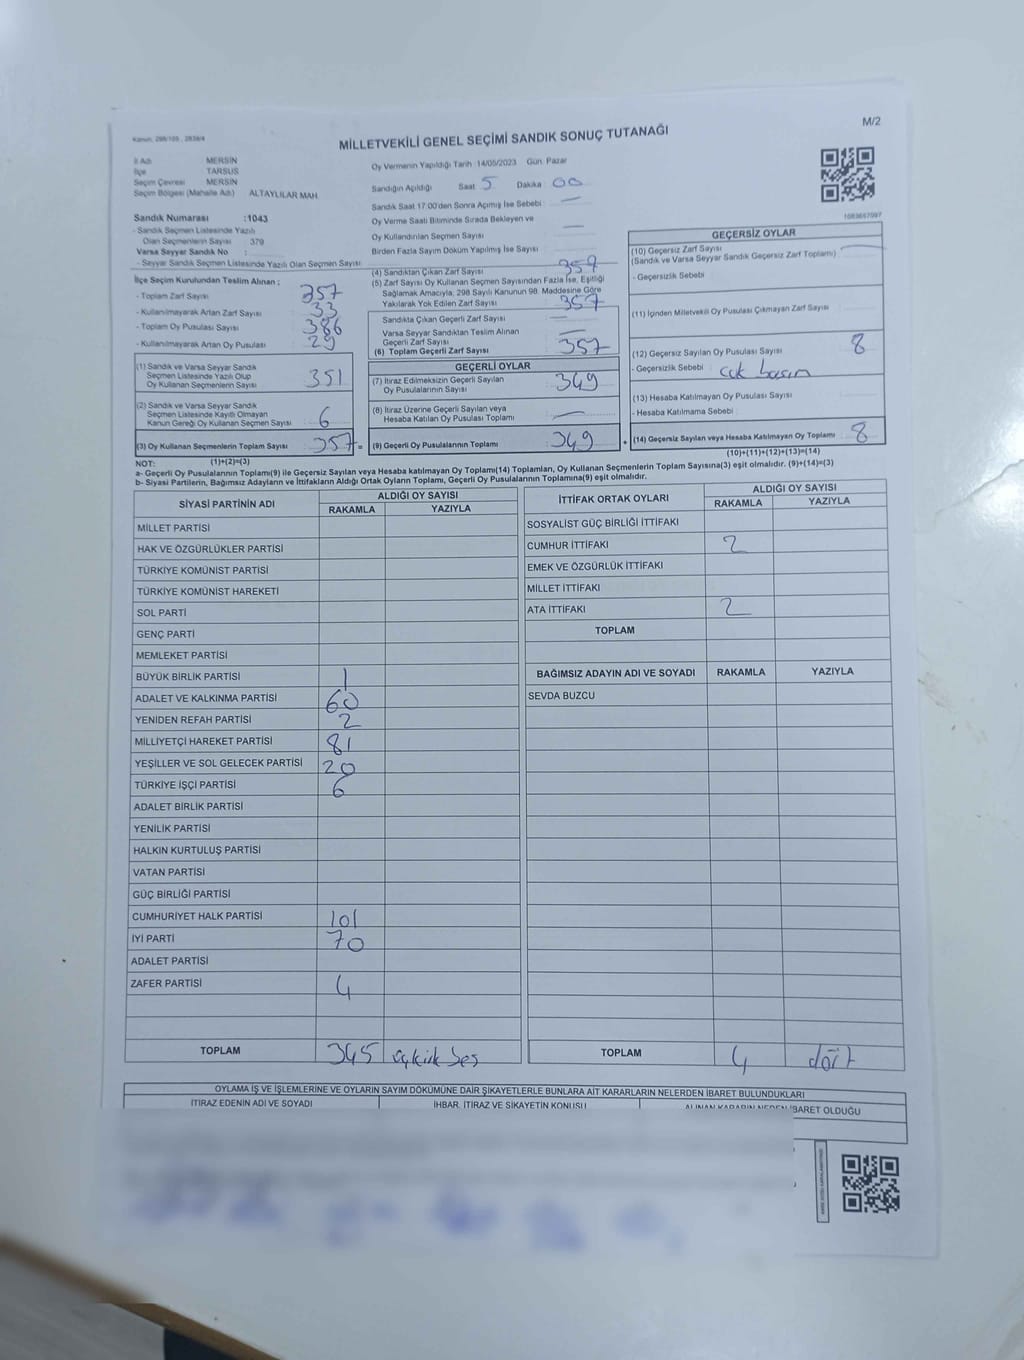 Kanun: 298/105 , 2839/4
M/2
MİLLETVEKİLİ GENEL SEÇİMİ SANDIK SONUÇ TUTANAĞI
İl Adı MERSİN
İlçe TARSUS
Seçim Çevresi MERSİN
Seçim Bölgesi (Mahalle Adı) ALTAYLILAR MAH
Sandık Numarası :1043
- Sandık Seçmen Listesinde Yazılı
Olan Seçmenlerin Sayısı 379
Varsa Seyyar Sandık No :
- Seyyar Sandık Seçmen Listesinde Yazılı Olan Seçmen Sayısı
Oy Vermenin Yapıldığı Tarih 14/05/2023 Gün: Pazar
Sandığın Açıldığı Saat 5 Dakika 00
Sandık Saat 17:00'den Sonra Açılmış İse Sebebi : —
Oy Verme Saati Bitiminde Sırada Bekleyen ve
Oy Kullandırılan Seçmen Sayısı : —
Birden Fazla Sayım Döküm Yapılmış İse Sayısı :
1083687097
İlçe Seçim Kurulundan Teslim Alınan :
- Toplam Zarf Sayısı
- Kullanılmayarak Artan Zarf Sayısı : 33
- Toplam Oy Pusulası Sayısı : 386
- Kullanılmayarak Artan Oy Pusulası : 29
(1) Sandık ve Varsa Seyyar Sandık
Seçmen Listesinde Yazılı Olup
Oy Kullanan Seçmenlerin Sayısı : 351
(2) Sandık ve Varsa Seyyar Sandık
Seçmen Listesinde Kayıtlı Olmayan
Kanun Gereği Oy Kullanan Seçmen Sayısı : 6
(3) Oy Kullanan Seçmenlerin Toplam Sayısı : 357 =
(1)+(2)=(3)
(4) Sandıktan Çıkan Zarf Sayısı : 357
(5) Zarf Sayısı Oy Kullanan Seçmen Sayısından Fazla İse, Eşitliği
Sağlamak Amacıyla, 298 Sayılı Kanunun 98. Maddesine Göre
Yakılarak Yok Edilen Zarf Sayısı : 357
Sandıkta Çıkan Geçerli Zarf Sayısı : —
Varsa Seyyar Sandıktan Teslim Alınan
Geçerli Zarf Sayısı : —
(6) Toplam Geçerli Zarf Sayısı : 357
GEÇERLİ OYLAR
(7) İtiraz Edilmeksizin Geçerli Sayılan
Oy Pusulalarının Sayısı : 349
(8) İtiraz Üzerine Geçerli Sayılan veya
Hesaba Katılan Oy Pusulası Toplamı : —
(9) Geçerli Oy Pusulalarının Toplamı : 349 +
GEÇERSİZ OYLAR
(10) Geçersiz Zarf Sayısı
(Sandık ve Varsa Seyyar Sandık Geçersiz Zarf Toplamı) :
- Geçersizlik Sebebi :
(11) İçinden Milletvekili Oy Pusulası Çıkmayan Zarf Sayısı :
(12) Geçersiz Sayılan Oy Pusulası Sayısı : 8
- Geçersizlik Sebebi : çok basım
(13) Hesaba Katılmayan Oy Pusulası Sayısı :
- Hesaba Katılmama Sebebi :
(14) Geçersiz Sayılan veya Hesaba Katılmayan Oy Toplamı : 8
(10)+(11)+(12)+(13)=(14)
NOT:
a- Geçerli Oy Pusulalarının Toplamı(9) ile Geçersiz Sayılan veya Hesaba katılmayan Oy Toplamı(14) Toplamları, Oy Kullanan Seçmenlerin Toplam Sayısına(3) eşit olmalıdır. (9)+(14)=(3)
b- Siyasi Partilerin, Bağımsız Adayların ve İttifakların Aldığı Ortak Oyların Toplamı, Geçerli Oy Pusulalarının Toplamına(9) eşit olmalıdır.
SİYASİ PARTİNİN ADI ALDIĞI OY SAYISI
RAKAMLA YAZIYLA
MİLLET PARTİSİ
HAK VE ÖZGÜRLÜKLER PARTİSİ
TÜRKİYE KOMÜNİST PARTİSİ
TÜRKİYE KOMÜNİST HAREKETİ
SOL PARTİ
GENÇ PARTİ
MEMLEKET PARTİSİ
BÜYÜK BİRLİK PARTİSİ 1
ADALET VE KALKINMA PARTİSİ 60
YENİDEN REFAH PARTİSİ 2
MİLLİYETÇİ HAREKET PARTİSİ 81
YEŞİLLER VE SOL GELECEK PARTİSİ 20
TÜRKİYE İŞÇİ PARTİSİ 6
ADALET BİRLİK PARTİSİ
YENİLİK PARTİSİ
HALKIN KURTULUŞ PARTİSİ
VATAN PARTİSİ
GÜÇ BİRLİĞİ PARTİSİ
CUMHURİYET HALK PARTİSİ 101
İYİ PARTİ 70
ADALET PARTİSİ
ZAFER PARTİSİ 4
TOPLAM 345
İTTİFAK ORTAK OYLARI ALDIĞI OY SAYISI
RAKAMLA YAZIYLA
SOSYALİST GÜÇ BİRLİĞİ İTTİFAKI
CUMHUR İTTİFAKI 2
EMEK VE ÖZGÜRLÜK İTTİFAKI
MİLLET İTTİFAKI
ATA İTTİFAKI 2
TOPLAM
BAĞIMSIZ ADAYIN ADI VE SOYADI RAKAMLA YAZIYLA
SEVDA BUZCU
TOPLAM 4 dört
OYLAMA İŞ VE İŞLEMLERİNE VE OYLARIN SAYIM DÖKÜMÜNE DAİR ŞİKAYETLERLE BUNLARA AİT KARARLARIN NELERDEN İBARET BULUNDUKLARI
İTİRAZ EDENİN ADI VE SOYADI İHBAR, İTİRAZ VE ŞİKAYETİN KONUSU ALINAN KARARIN NEDEN İBARET OLDUĞU